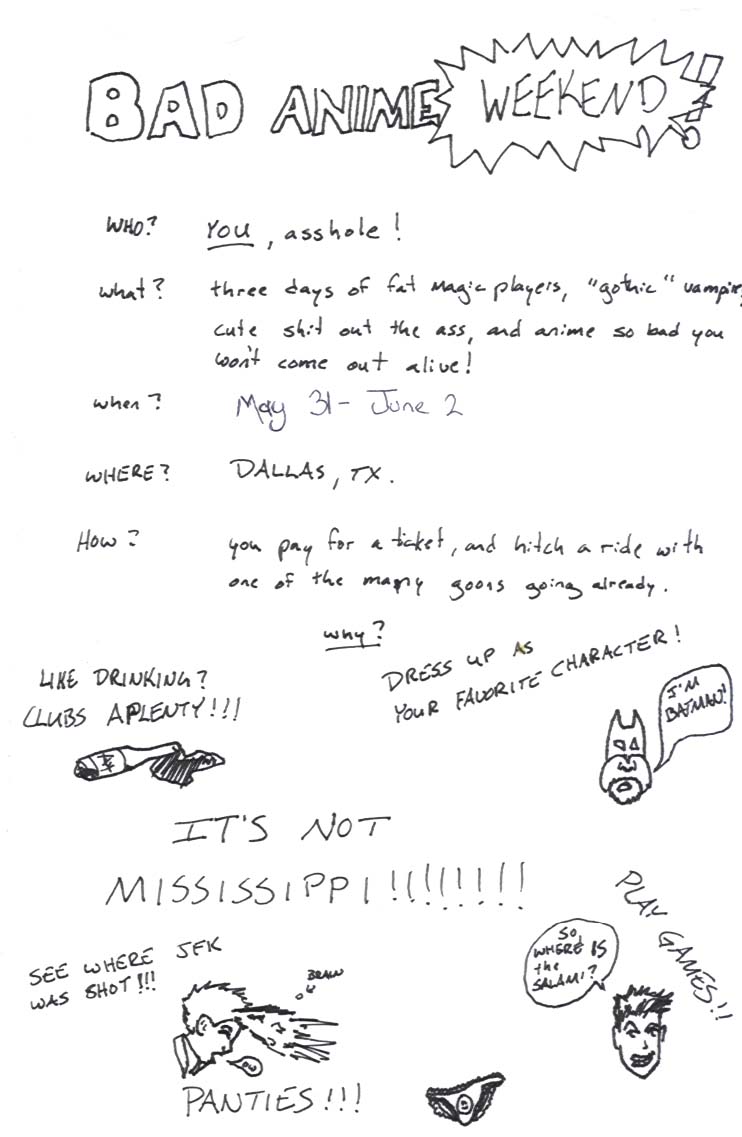 BAD ANIME WEEKEND!
WHO? YOU, asshole!
what? three days of fat Magic players, "gothic" vampire,
cute shit out the ass, and anime so bad you
won't come out alive!
when? May 31 - June 2
WHERE? DALLAS, TX.
How? you pay for a ticket, and hitch a ride with
one of the many goons going already.
why?
LIKE DRINKING?
CLUBS APLENTY!!!
DRESS UP AS
YOUR FAVORITE CHARACTER!
I'M
BATMAN!
IT'S NOT
MISSISSIPPI!!!!!!!!
SEE WHERE JFK
WAS SHOT!!!
BRAIN
OW
PLAY GAMES!!
SO,
WHERE IS
the
SALAMI?
PANTIES!!!